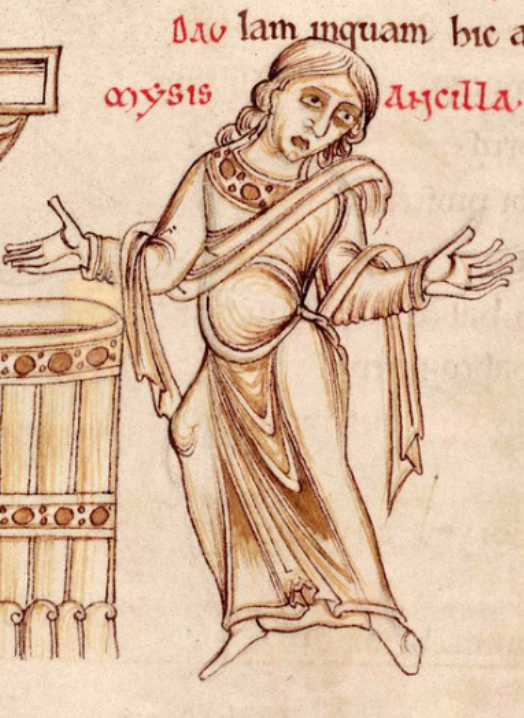 Dau lam inquam hic a
mysis ancilla.